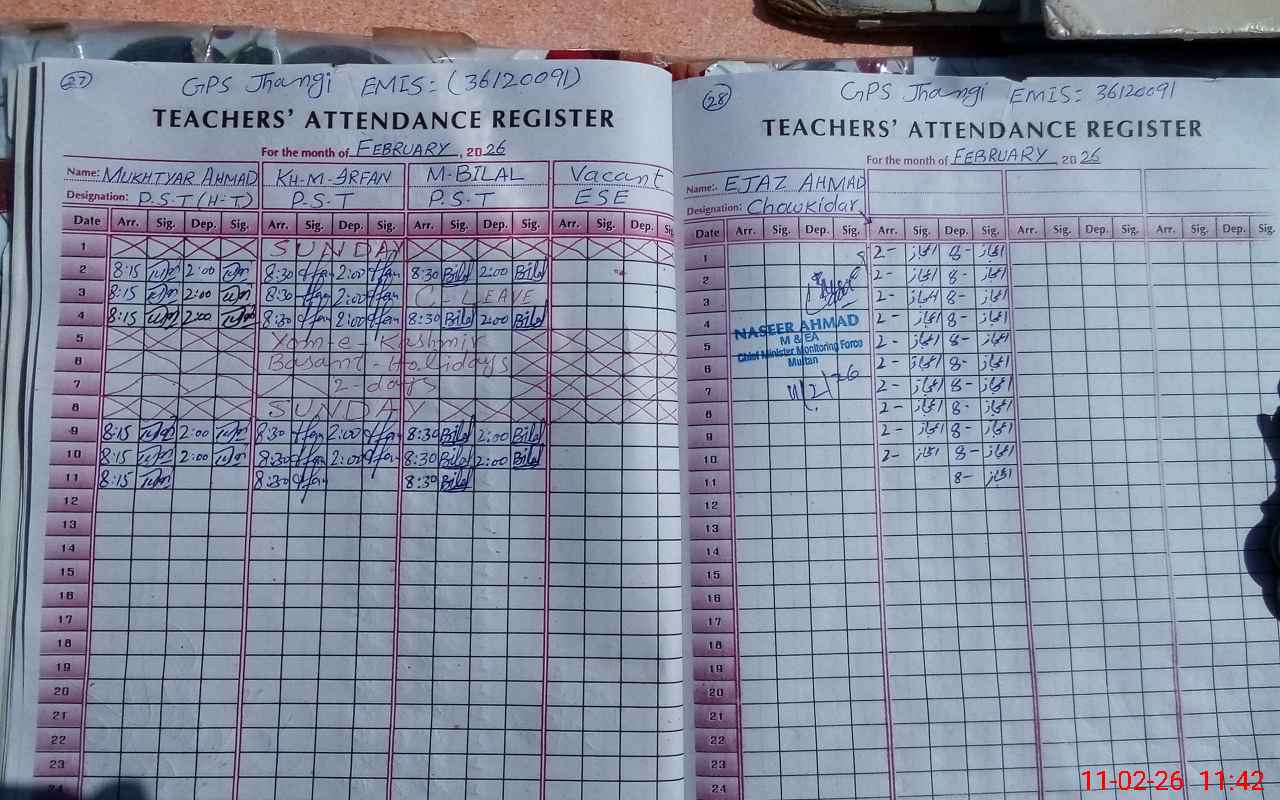 27
GPS Jhangi EMIS: (36120091)
TEACHERS' ATTENDANCE REGISTER
For the month of FEBRUARY, 2026
Name: MUKHTYAR AHMAD KH-M-IRFAN M-BILAL Vacant
Designation: P.S.T (H-T) P.S.T P.S.T ESE
Date Arr. Sig. Dep. Sig. Arr. Sig. Dep. Sig. Arr. Sig. Dep. Sig. Arr. Sig. Dep. Sig.
1 SUNDAY
2 8:15 2:00 8:30 Irfan 2:00 Irfan 8:30 Bilal 2:00 Bilal
3 8:15 2:00 8:30 Irfan 2:00 Irfan C-LEAVE
4 8:15 2:00 8:30 Irfan 2:00 Irfan 8:30 Bilal 2:00 Bilal
5 Yom-e-Kashmir
6 Basant-Holidays
7 2-days
8 SUNDAY
9 8:15 2:00 8:30 Irfan 2:00 Irfan 8:30 Bilal 2:00 Bilal
10 8:15 2:00 8:30 Irfan 2:00 Irfan 8:30 Bilal 2:00 Bilal
11 8:15 8:30 Irfan 8:30 Bilal
12
13
14
15
16
17
18
19
20
21
22
23
24
28
GPS Jhangi EMIS: 36120091
TEACHERS' ATTENDANCE REGISTER
For the month of FEBRUARY 2026
Name: EJAZ AHMAD
Designation: Chowkidar
Date Arr. Sig. Dep. Sig. Arr. Sig. Dep. Sig. Arr. Sig. Dep. Sig. Arr. Sig. Dep. Sig.
1 2- اعجاز 8- اعجاز
2 2- اعجاز 8- اعجاز
3 2- اعجاز 8- اعجاز
4 2- اعجاز 8- اعجاز
NASEER AHMAD
M & EA
5 2- اعجاز 8- اعجاز
Chief Minister Monitoring Force
Multan
6 2- اعجاز 8- اعجاز
7 2- اعجاز 8- اعجاز
11/2/26
8 2- اعجاز 8- اعجاز
9 2- اعجاز 8- اعجاز
10 2- اعجاز 8- اعجاز
11 8- اعجاز
12
13
14
15
16
17
18
19
20
21
22
23
24
11-02-26 11:42